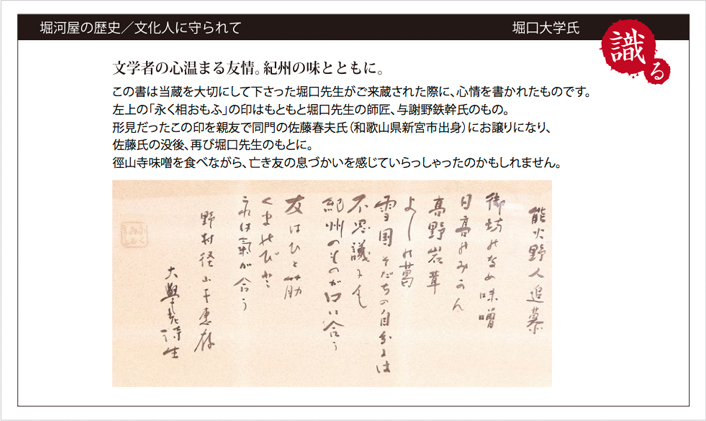 堀河屋の歴史／文化人に守られて
堀口大学氏
識る
文学者の心温まる友情。紀州の味とともに。
この書は当蔵を大切にして下さった堀口先生がご来蔵された際に、心情を書かれたものです。
左上の「永く相おもふ」の印はもともと堀口先生の師匠、与謝野鉄幹氏のもの。
形見だったこの印を親友で同門の佐藤春夫氏（和歌山県新宮市出身）にお譲りになり、
佐藤氏の没後、再び堀口先生のもとに。
徑山寺味噌を食べながら、亡き友の息づかいを感じていらっしゃったのかもしれません。
能火野人追慕
御坊のなめ味噌
日高のみかん
高野岩茸
よしの葛
雪国そだちの自分には
不思議にも
紀州のものが口に合う
友はひと筋
くまのびと
これは氣が合う
野村徑山子惠存
大學老詩生